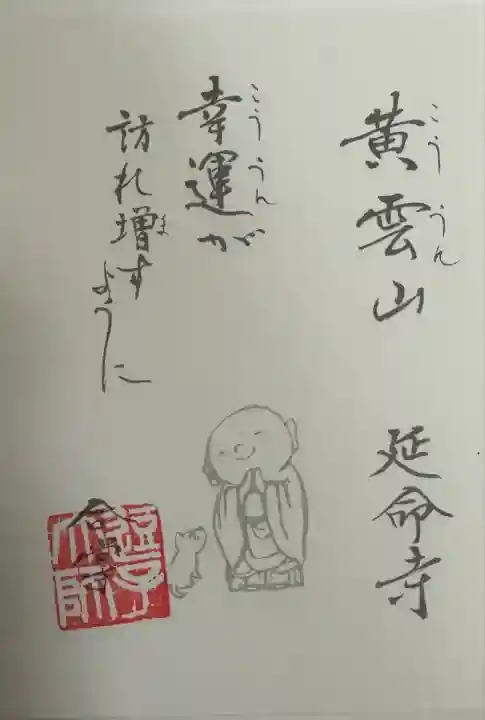 黄雲山 延命寺
こううん
幸運が
こううん
訪れ増すように
ま